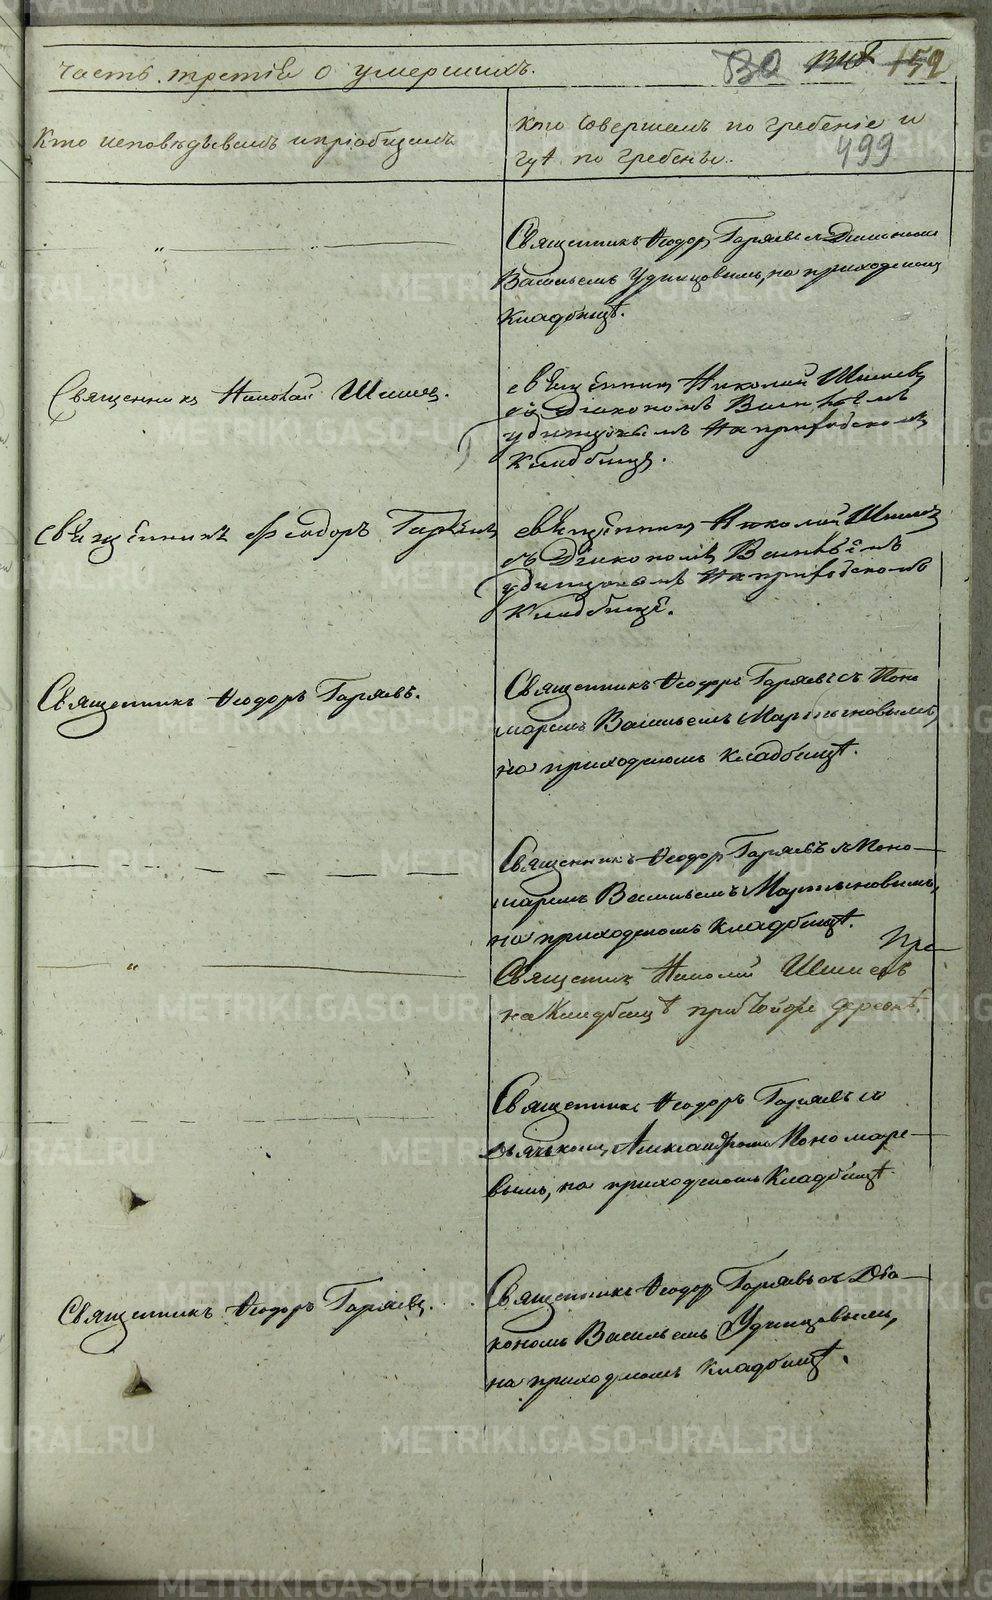 часть третія о умершихъ.
152
499
Кто исповѣдывалъ и пріобщалъ
Кто совершалъ погребеніе и
гдѣ погребены.
Священникъ Ѳеодоръ Гаряевъ съ Діакономъ
Васильемъ Удинцовымъ, на приходскомъ
Кладбищѣ.
Священникъ Николай Шишевъ.
священникъ Николай Шишевъ
съ Діакономъ Васильемъ
удинцовымъ на приходскомъ
Кладбище.
священникъ Феодоръ Гаряевъ
священникъ Николай Шишевъ
съ Діакономъ Васильемъ
удинцовымъ на приходскомъ
Кладбище.
Священникъ Ѳеодоръ Гаряевъ.
Священникъ Ѳеодоръ Гаряевъ съ Поно
маремъ Васильемъ Мартыновымъ,
на приходскомъ кладбищѣ.
Священникъ Ѳеодоръ Гаряевъ съ Поно
маремъ Васильемъ Мартыновымъ,
на приходскомъ кладбищѣ.
Священникъ Николай Шишевъ
на Кладбищѣ при деревнѣ.
Священникъ Ѳеодоръ Гаряевъ съ
дьячкомъ Александромъ Пономаре
вымъ, на приходскомъ Кладбищѣ.
Священникъ Ѳеодоръ Гаряевъ.
Священникъ Ѳеодоръ Гаряевъ съ Діа
кономъ Васильемъ Удинцовымъ,
на приходскомъ кладбищѣ.
METRIKI.GASO-URAL.RU